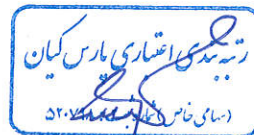 رتبه بندی اعتباری پارس کیان
(سهامی خاص)